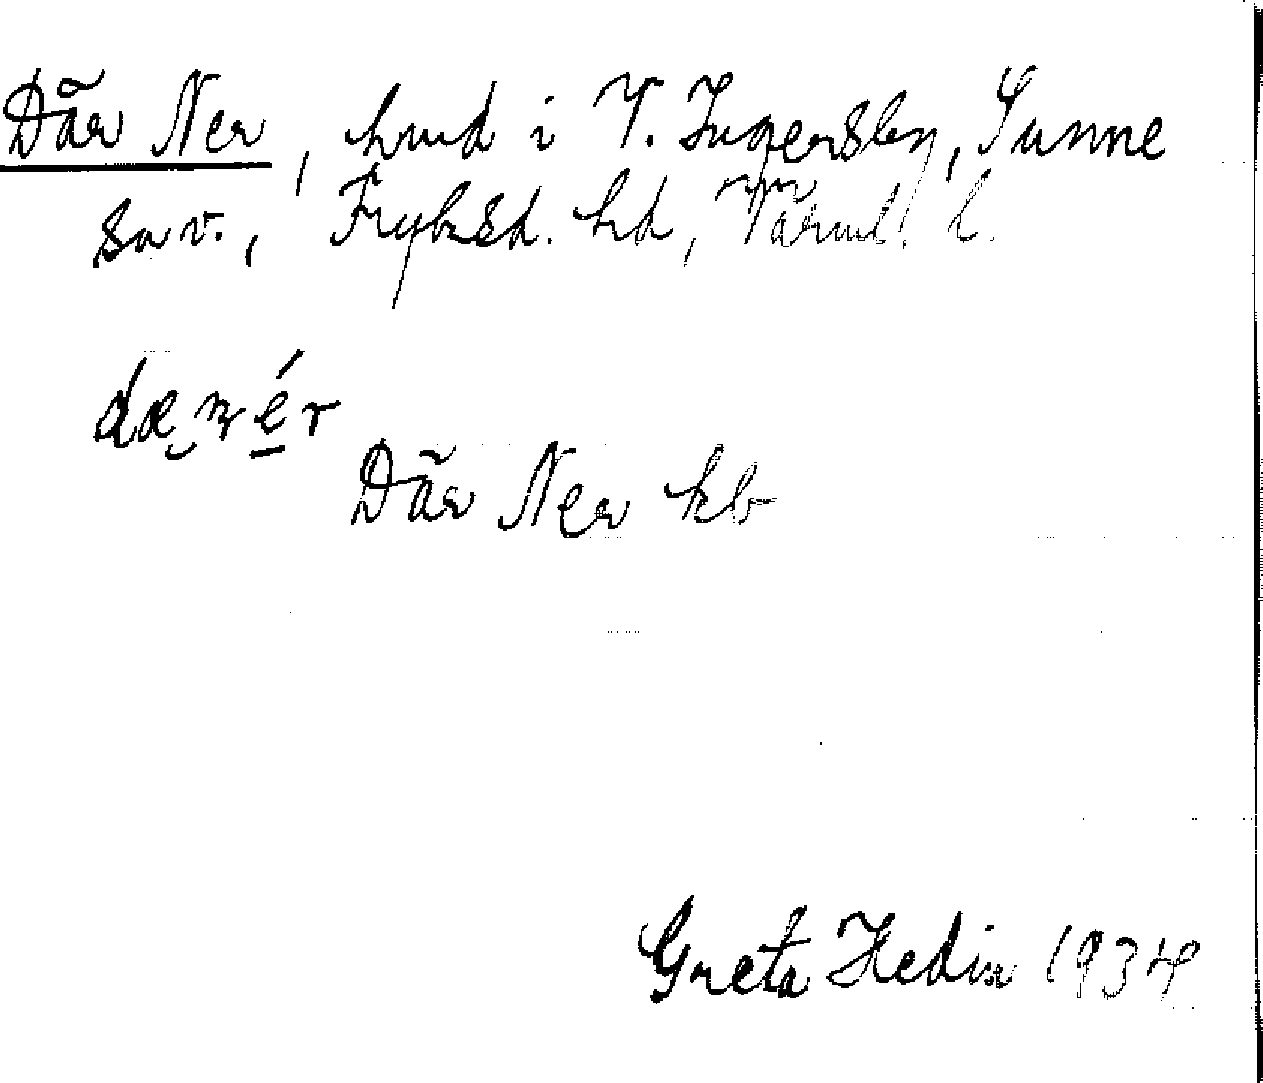 Där Ner, hmd i V. Ingersby, Sunne
sn v., Fryksd. hd, Värml. l.
dæ nér
Där Ner kb
Greta Hedin 1934